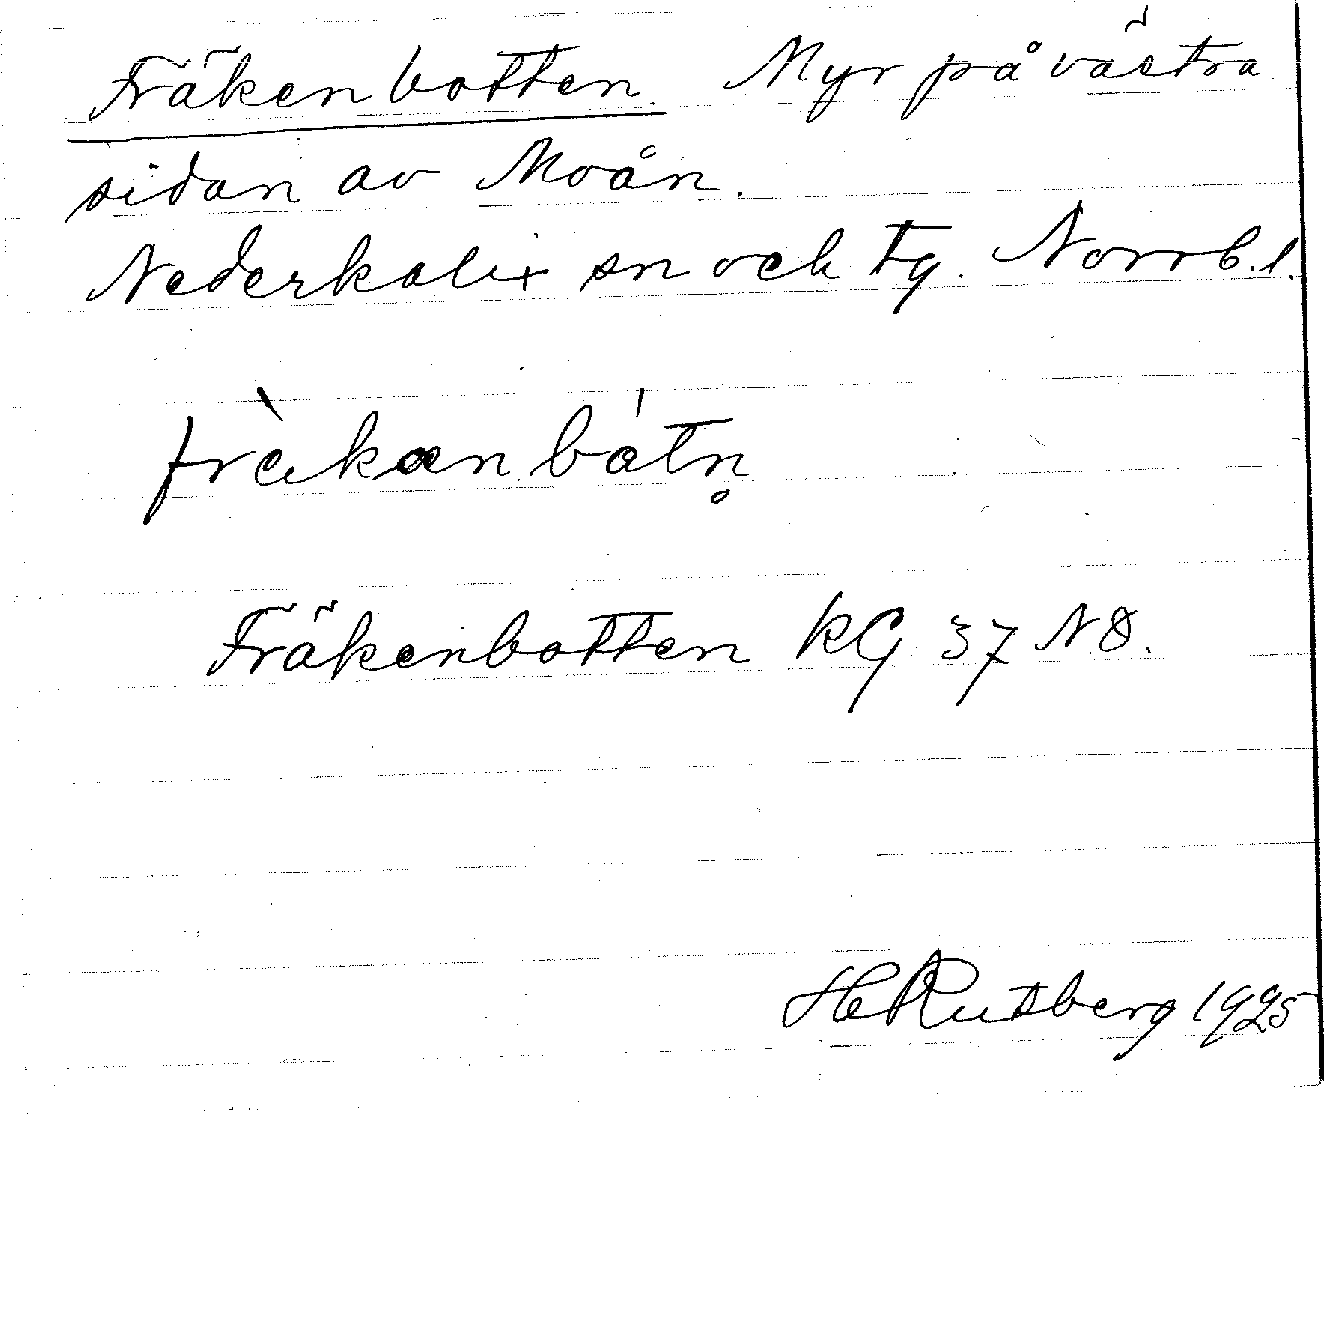 Fräkenbotten Myr på västra
sidan av Moån.
Nederkalix sn och tg. Norrb. l.
fràkanbátn̥
Fräkenbotten KG 37 NO.
HRutberg 1925